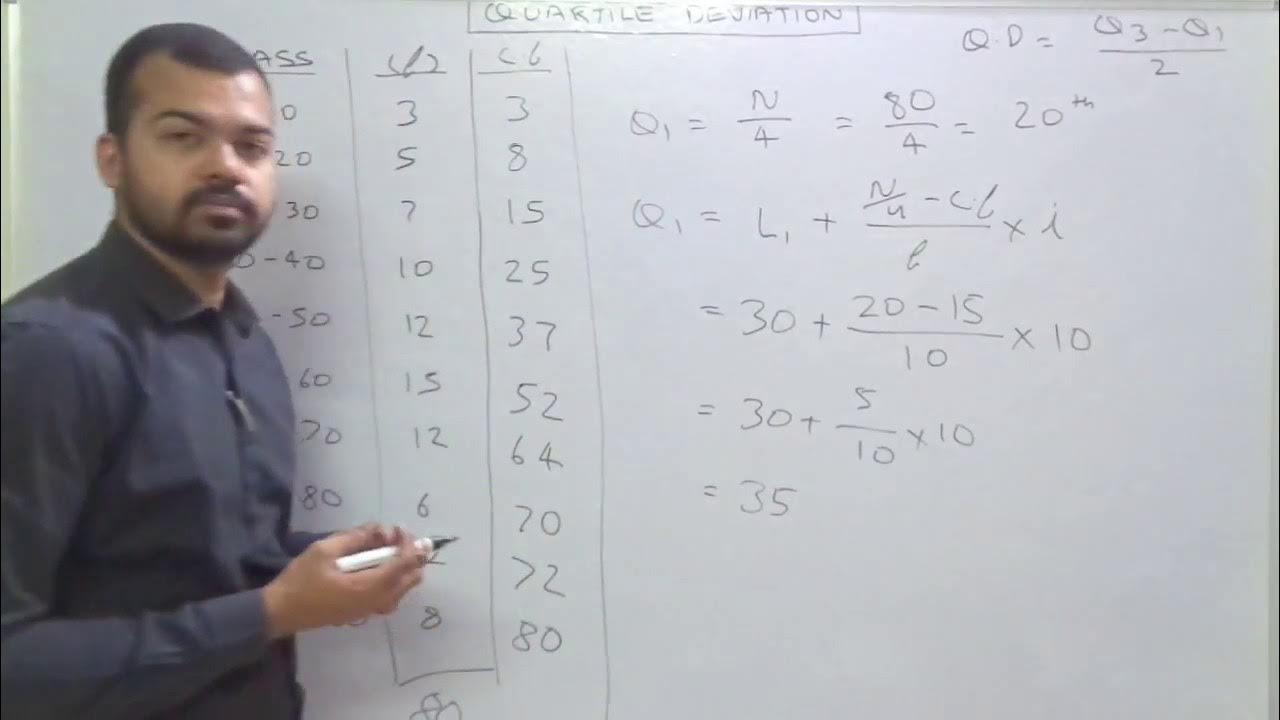 QUARTILE DEVIATION
Q.D = Q3 - Q1 / 2
ASS c.f
0 3 3
20 5 8
30 7 15
0-40 10 25
-50 12 37
60 15 52
70 12 64
80 6 70
72
8 80
80
Q1 = N/4 = 80/4 = 20th
Q1 = L1 + N/4 - c.f / f × i
= 30 + 20-15 / 10 × 10
= 30 + 5/10 × 10
= 35